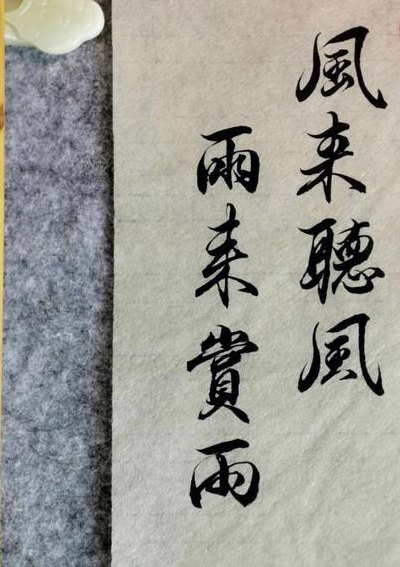 風来聽風
雨来赏雨